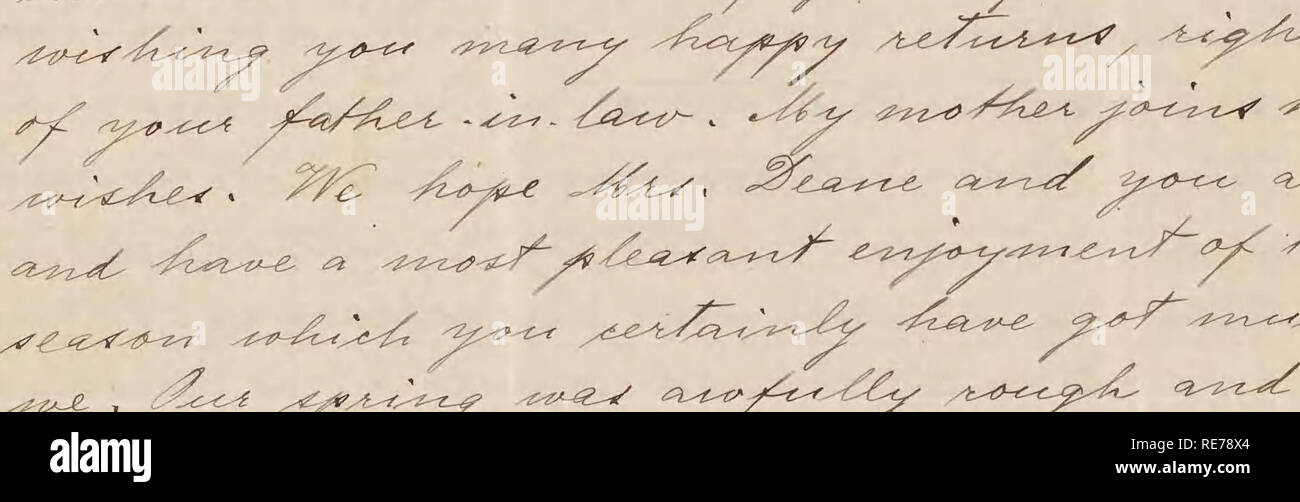 wishing you many happy returns, righ
of your father-in-law. My mother joins
wishes. We hope Mrs. Deane and you a
and have a most pleasant enjoyment of
season which you certainly have got mu
we. Our spring was awfully rough and
alamy
RE78X4
www.alamy.com